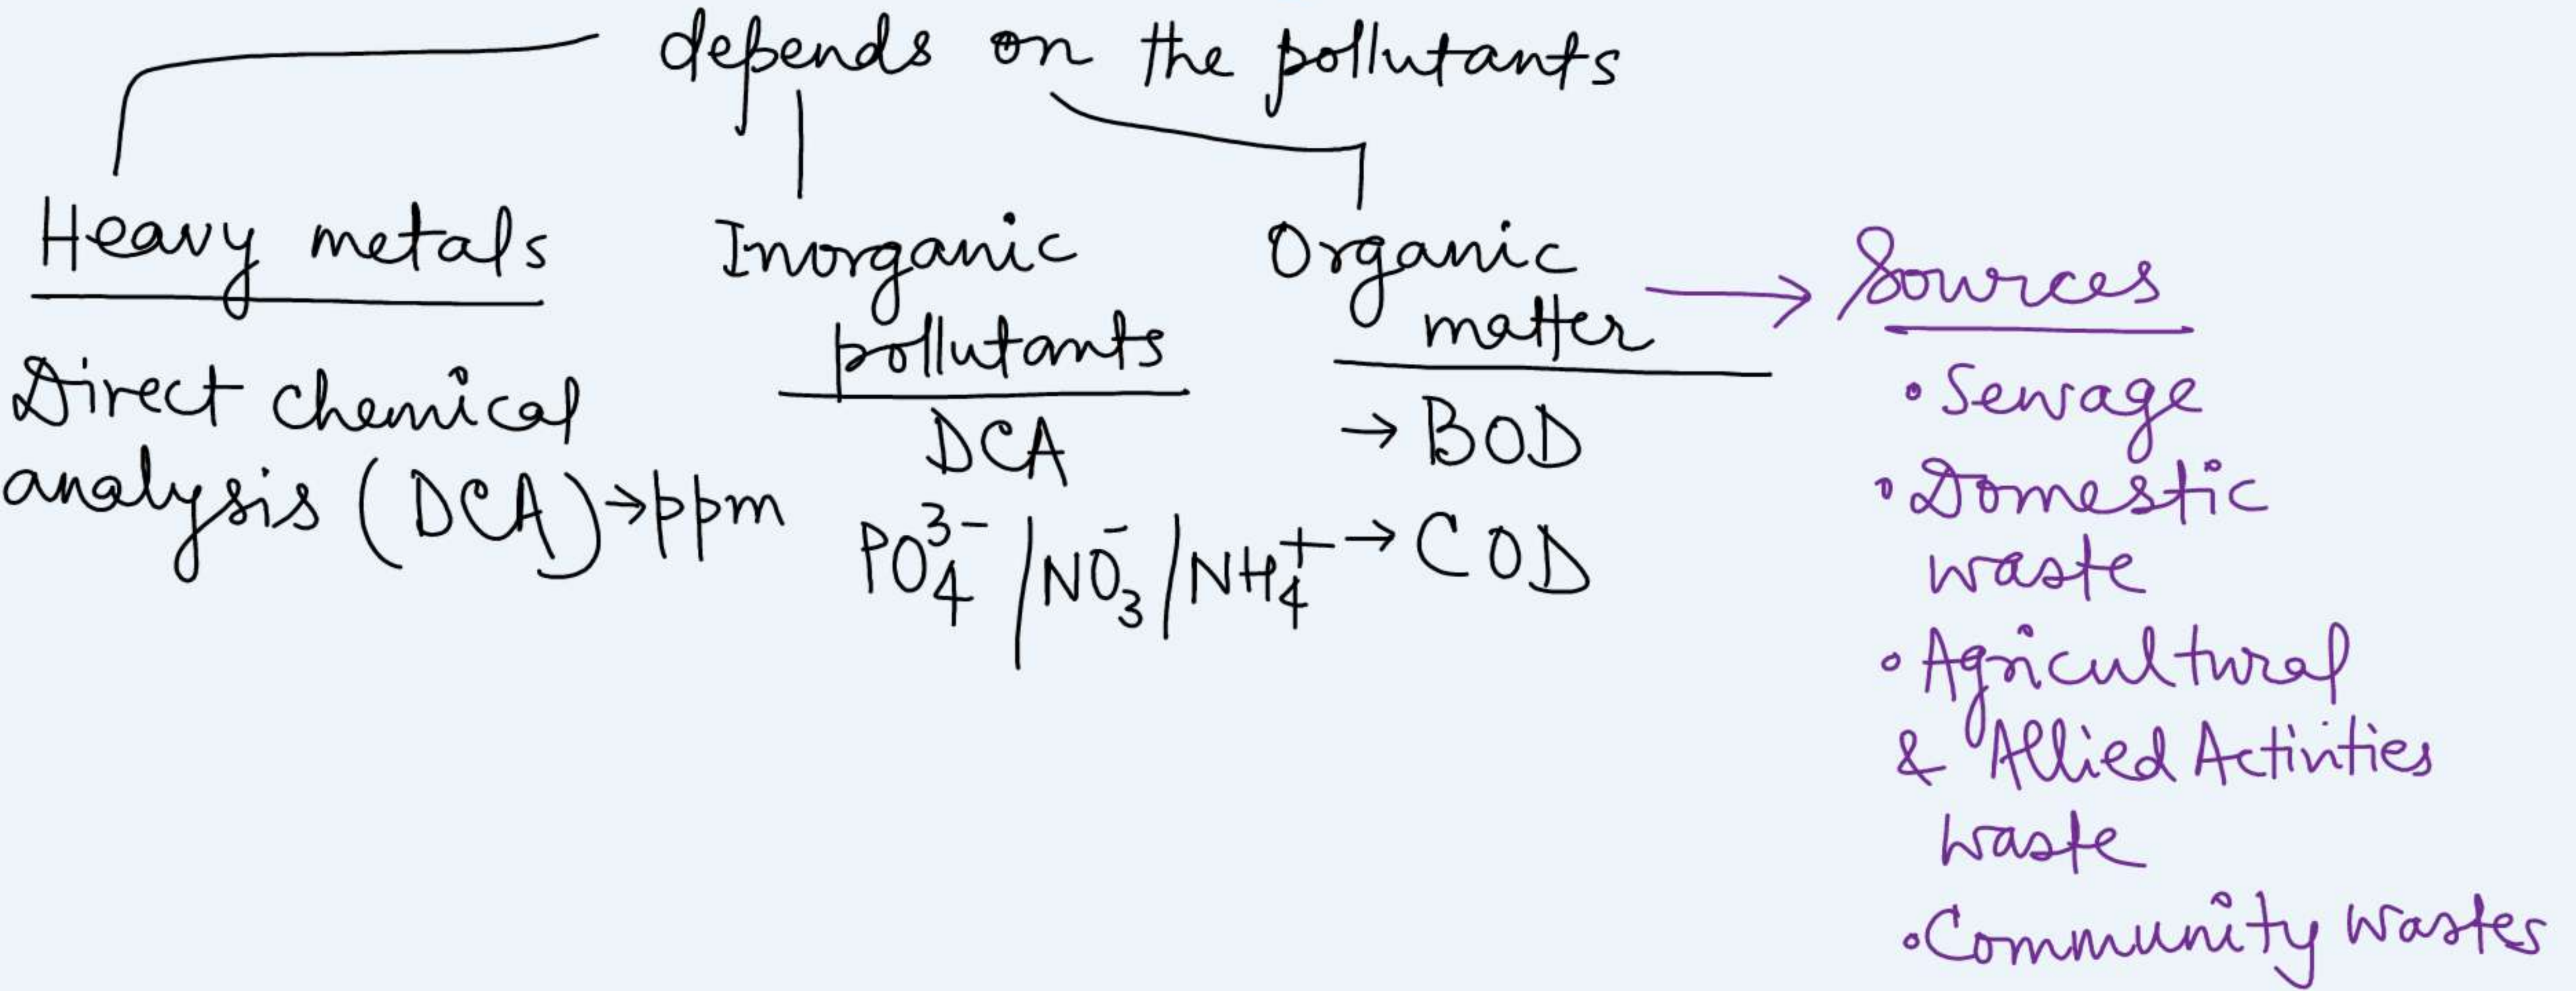 depends on the pollutants
Heavy metals
Direct chemical
analysis (DCA) → ppm
Inorganic
pollutants
DCA
PO₄³⁻ / NO₃⁻ / NH₄⁺
Organic
matter
→ BOD
→ COD
→ Sources
• Sewage
• Domestic
waste
• Agricultural
& Allied Activities
waste
• Community wastes